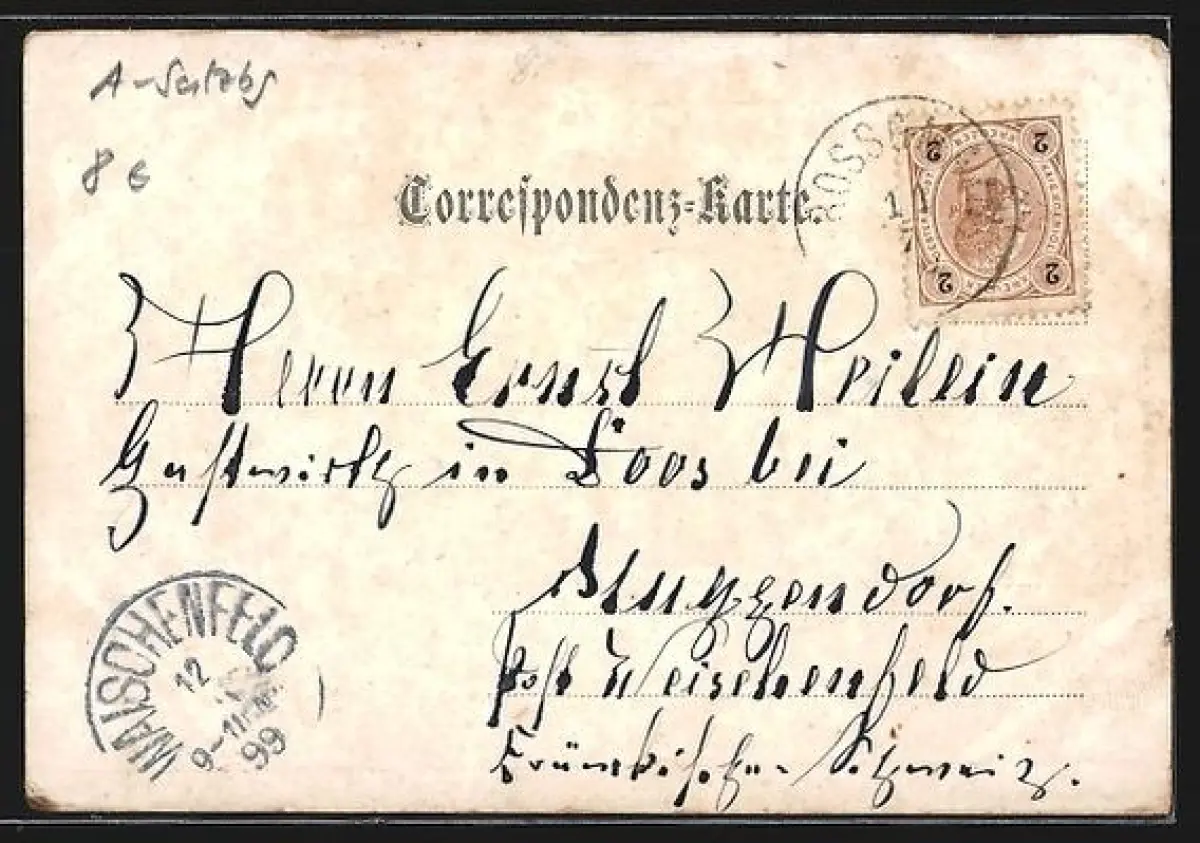 A-Salzbg
8 €
Correspondenz-Karte.
2 2
2 2
Herrn Ernst Heilein
Gastwirth in Doos bei
Muggendorf.
Post Weischenfeld
Fränkische Schweiz.
WAISCHENFELD
12
9-11
99